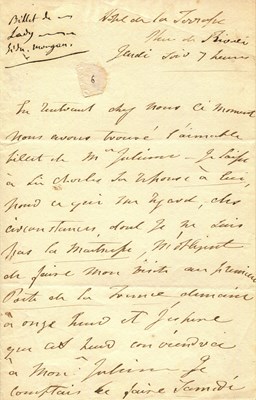 Billet de
Lady
Sidn. morgan.
Hotel de la Terrasse
Rue de Rivoli
Jeudi Soir 7 heures
6
En rentrant chez nous ce moment
nous avons trouvé l'aimable
billet de Mr Jullien — Je laisse
à Sir Charles sa réponse à lui,
pour ce qui me regard, des
circonstances, dont je ne suis
pas la maitresse, m'obligent
de faire mon visite au premier
Poete de la France demain
a onze heure et J'espère
que cet heure conviendra
à Monr Jullien. Je
comptais le faire Samedi